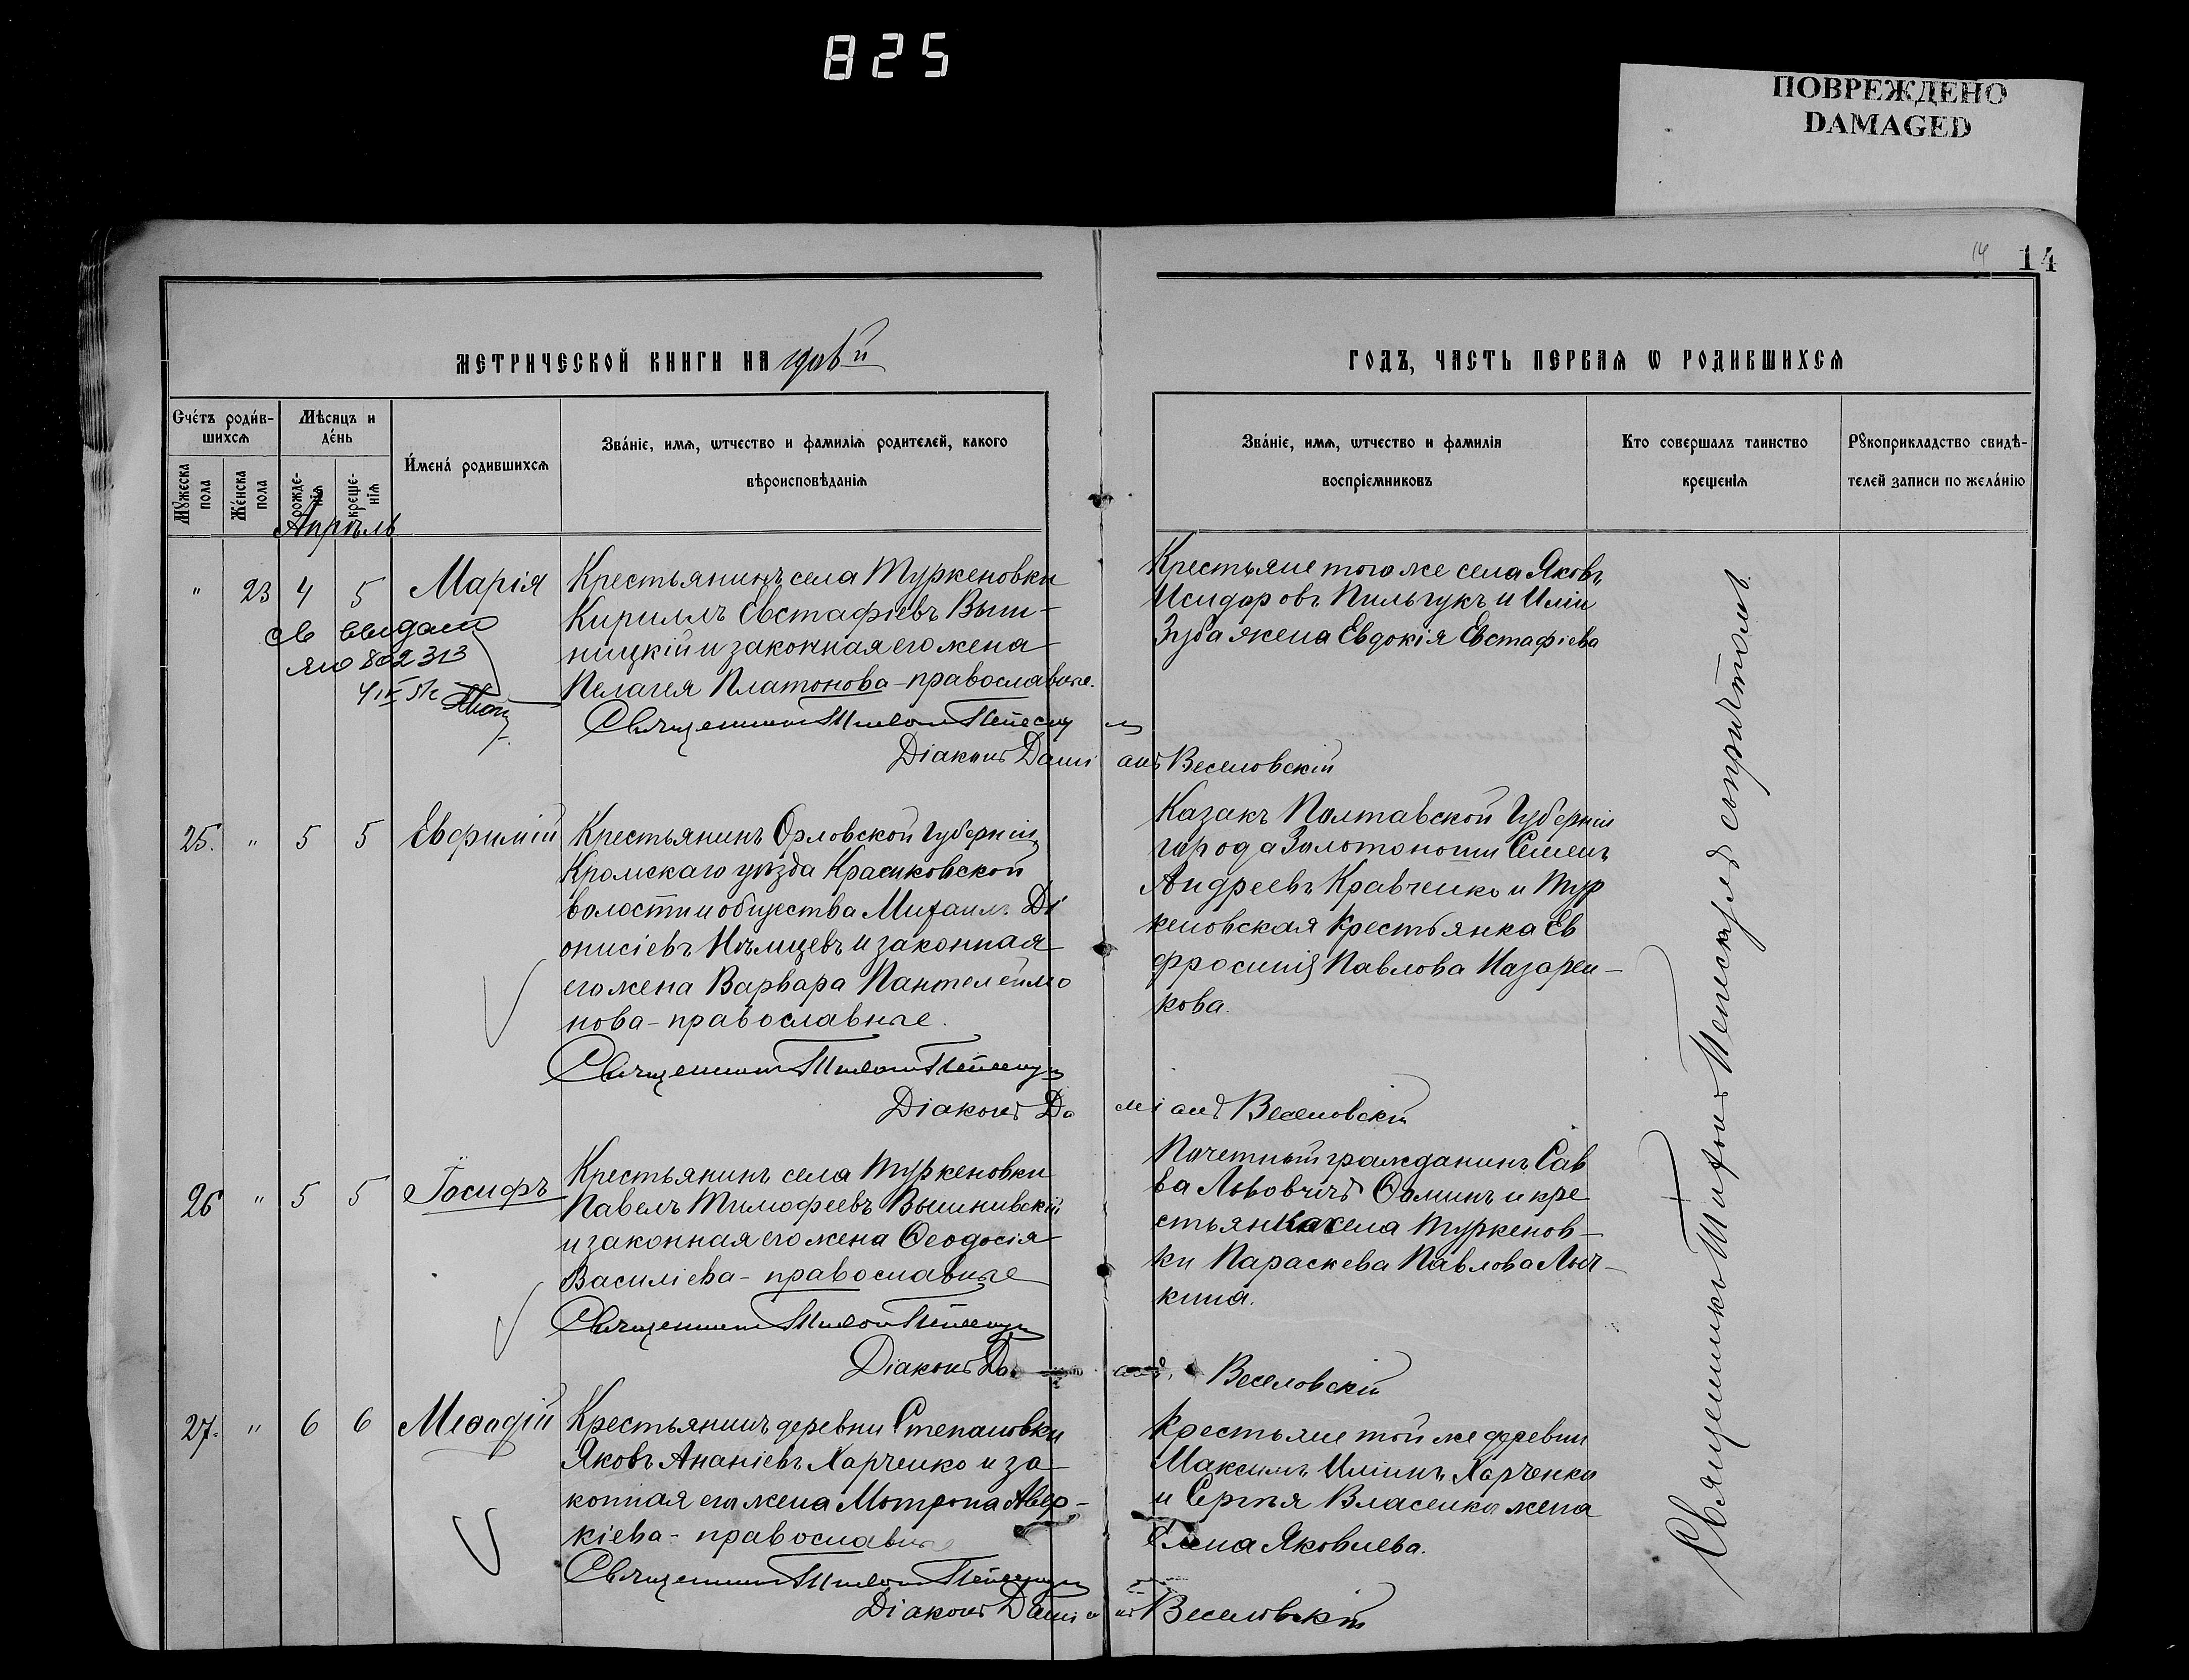 825
ПОВРЕЖДЕНО
DAMAGED
14
14
МЕТРИЧЕСКОЙ КНИГИ НА
ГОДЪ, ЧАСТЬ ПЕРВАЯ Ѡ РОДИВШИХСЯ
Счётъ родив-
шихся
Мѣсяцъ и
день
Мужеска
пола
Женска
пола
рожде-
нія
креще-
нія
Имена родившихся
Званіе, имя, ѡтчество и фамилія родителей, какого
вѣроисповѣданія
Званіе, имя, ѡтчество и фамилія
воспріемниковъ
Кто совершалъ таинство
крещенія
Рукоприкладство свидѣ-
телей записи по желанію
Апрѣль
" 23 4 5 Марія
Крестьянинъ села Туркеновки
Кириллъ Евстафіевъ Выш-
ницкій и законная его жена
Пелагея Платонова - православные.
Діаконъ Даміанъ Веселовскій
Крестьяне того же села Яковъ
Исидоровъ Пильгукъ и Иліи
Зуба жена Евдокія Евстафіева
св выдано
802313
25. " 5 5 Евфимій
Крестьянинъ Орловской Губерніи
Кромскаго уѣзда
волости и общества Михаилъ Ді
онисіевъ Нѣмцевъ и законная
его жена Варвара Пантелеймо
нова - православные.
Діаконъ Даміанъ Веселовскій
Казакъ Полтавской Губерніи
города Золотоноши Семенъ
Андреевъ Кравченко и Тур
кеновская крестьянка Ев
фросинія Павлова Назарен-
кова.
26 " 5 5 Іосифъ
Крестьянинъ села Туркеновки
Павелъ Тимофеевъ
и законная его жена Ѳеодосія
Василіева - православные
Діаконъ Даміанъ Веселовскій
Почетный гражданинъ Сав
ва Львовичъ Ѳоминъ и кре
стьянка села Туркенов-
ки Параскева Павлова Лыч-
кина.
27. " 6 6 Меѳодій
Крестьянинъ деревни Степановки
Яковъ Ананіевъ Харченко и за
конная его жена Мотрона Авер-
кіева - православные
Священникъ
Діаконъ Даміанъ Веселовскій
Крестьяне той же деревни
Максимъ Иліинъ Харченко
и Сергѣя Власенка жена
Елена Яковлева.
Священникъ Тихонъ Пепескулъ съ причтомъ